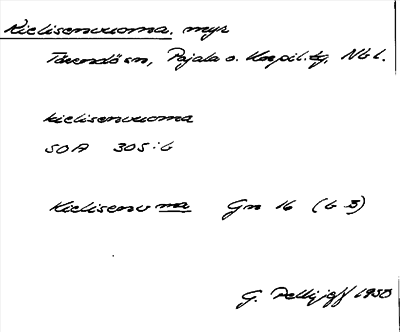 Kielisenvuoma, myr
Tärendö sn, Pajala o. Korpil. tg, Nbl.
kielisenvuoma
SOA 305:6
Kielisenvma Gn 16 (b 3)
G. Pellijeff 1955